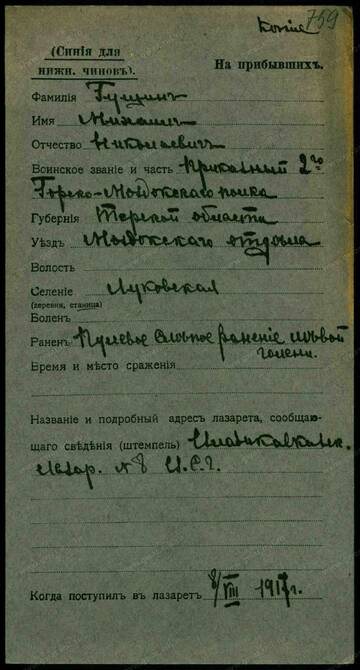 Копiя 759
(Синія для
нижн. чиновъ).
На прибывшихъ.
Фамилія Гущинъ
Имя Михаилъ
Отчество Николаевич
Воинское званіе и часть Приказный 2го
Горско-Моздокскаго полка
Губернія Терской области
Уѣздъ Моздокскаго отдѣла
Волость
Селеніе Луковская
(деревня, станица)
Боленъ
Раненъ Пулевое слѣпое раненіе лѣвой
голени.
Время и мѣсто сраженія
Названіе и подробный адресъ лазарета, сообщаю-
щаго свѣдѣнія (штемпель) Владикавказ.
Лазар. N 8 И.С.Г.
Когда поступил въ лазаретъ 8/VIII 1917г.